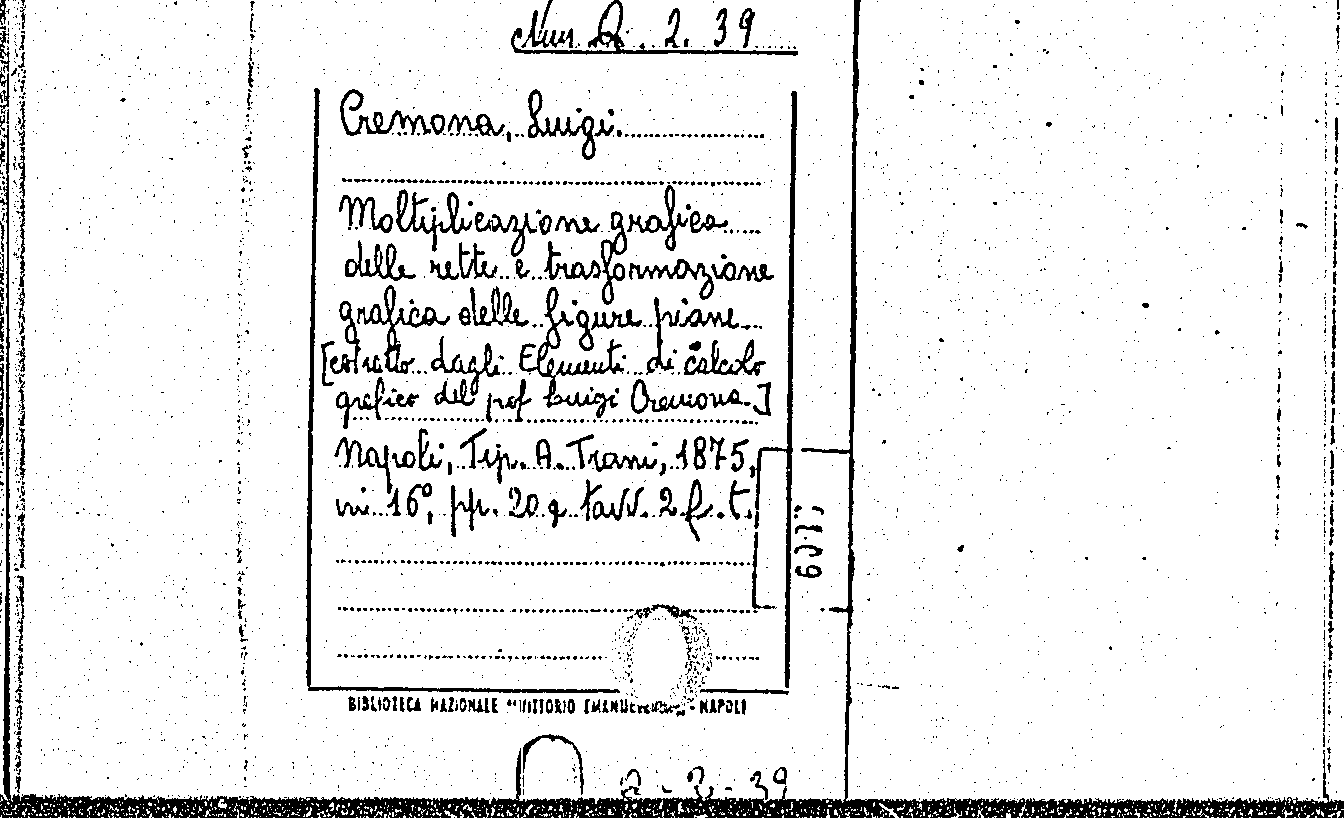 Q. 2. 39
Cremona, Luigi.
Moltiplicazione grafica
delle rette e trasformazione
grafica delle figure piane
[estratto dagli Elementi di calcolo
grafico del prof Luigi Cremona.]
Napoli, Tip. A. Trani, 1875,
in 16°, pp. 20 e tavv. 2 f. t.
BIBLIOTECA NAZIONALE "VITTORIO EMANUELE - NAPOLI
Q - 2 - 39